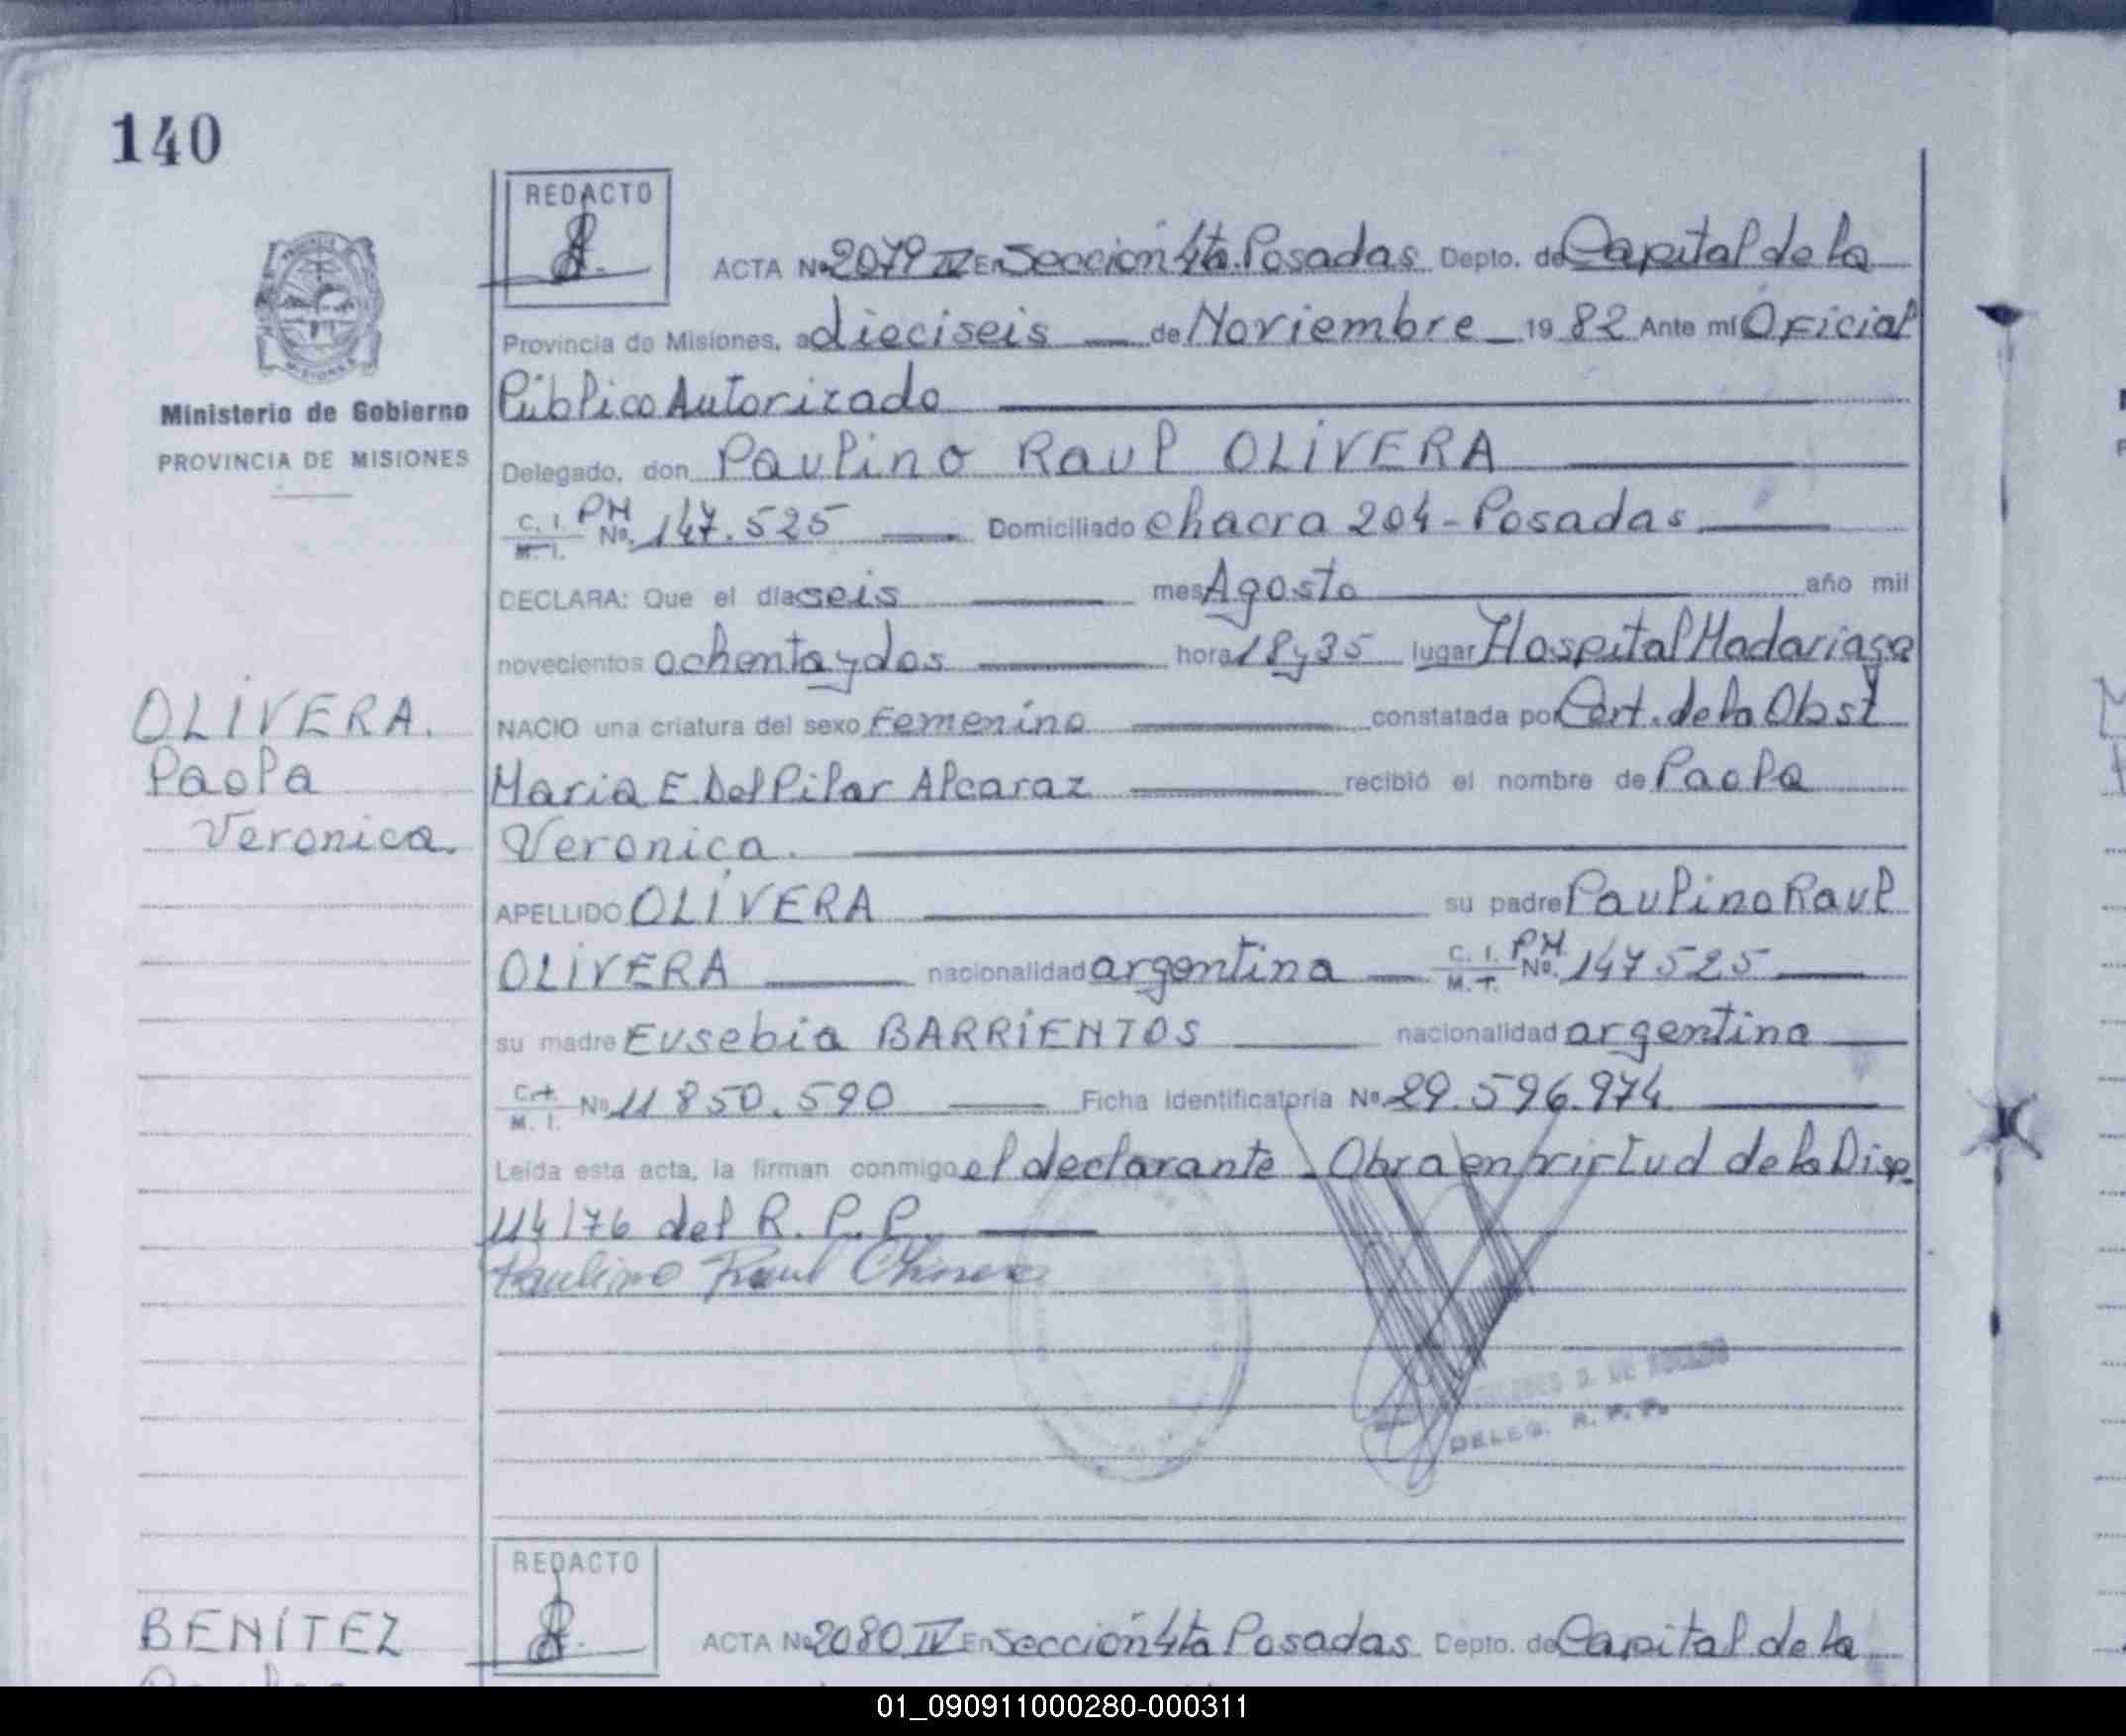 140
REDACTO
ACTA No 2079 IV En Sección 4ta. Posadas Depto. de Capital de la
Provincia de Misiones, a dieciseis de Noviembre 1982 Ante mí Oficial
Ministerio de Gobierno
PROVINCIA DE MISIONES
Público Autorizado
Delegado, don Paulino Raul OLIVERA
C. I. PM
M. I. No. 147.525 Domiciliado chacra 204 - Posadas
DECLARA: Que el día seis mes Agosto año mil
novecientos ochenta y dos hora 18 y 35 lugar Hospital Madariaga
OLIVERA.
Paola
Veronica.
NACIO una criatura del sexo Femenino constatada por Cert. de la Obst
Maria E. Del Pilar Alcaraz recibió el nombre de Paola
Veronica.
APELLIDO OLIVERA su padre Paulino Raul
OLIVERA nacionalidad argentina C. I. PM
M. T. No. 147525
su madre Eusebia BARRIENTOS nacionalidad argentina
C. I.
M. I. No 11850.590 Ficha Identificatoria No 29.596.974
Leída esta acta, la firman conmigo el declarante. Obra en virtud de la Disp.
114/76 del R. P. P.
Paulino Raul Olivera
D. DE
DELEG. R. P. P.
BENÍTEZ
REDACTO
ACTA No 2080 IV En Sección 4ta Posadas Depto. de Capital de la
01_090911000280-000311